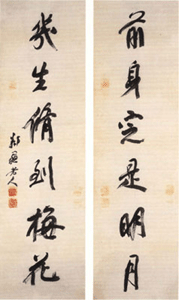 前身定是明月
几生脩到梅花